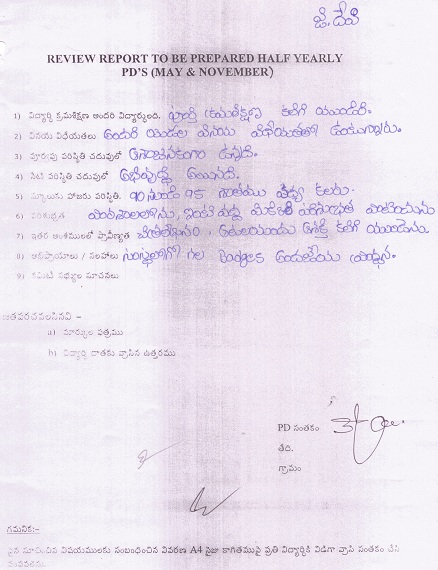 జి. దేవి
REVIEW REPORT TO BE PREPARED HALF YEARLY
PD'S (MAY & NOVEMBER)
1) విద్యార్థి క్రమశిక్షణ అందరి విద్యార్థులది. పూర్తి క్రమశిక్షణ కలిగి యుండెది.
2) వినయ విధేయతలు అందరి యెడల వినయ విధేయతతో ఉంటున్నారు.
3) పూర్వపు పరిస్థితి చదువులో ఆశాజనకంగా ఉన్నది.
4) నేటి పరిస్థితి చదువులో అభివృద్ధి అయినది.
5) స్కూలుకు హాజరు పరిస్థితి. 90 నుండి 95 శాతము మధ్య కలరు.
6) పరిశుభ్రత పాఠశాలలోను, ఇంటి వద్ద
7) ఇతర అంశములలో ప్రావీణ్యత ఆటలయందు ఆసక్తి కలిగి యుండెను.
8) అభిప్రాయాలు / సలహాలు సంస్థలోగల
9) కమిటి సభ్యుల సూచనలు
జతపరచవలసినవి –
a) మార్కుల పత్రము
b) విద్యార్థి దాతకు వ్రాసిన ఉత్తరము
PD సంతకం
తేది.
గ్రామం
గమనిక:-
పైన సూచించిన విషయములకు సంబంధించిన వివరణ A4 సైజు కాగితముపై ప్రతి విద్యార్థికి విడిగా వ్రాసి సంతకం చేసి
పంపవలెను.